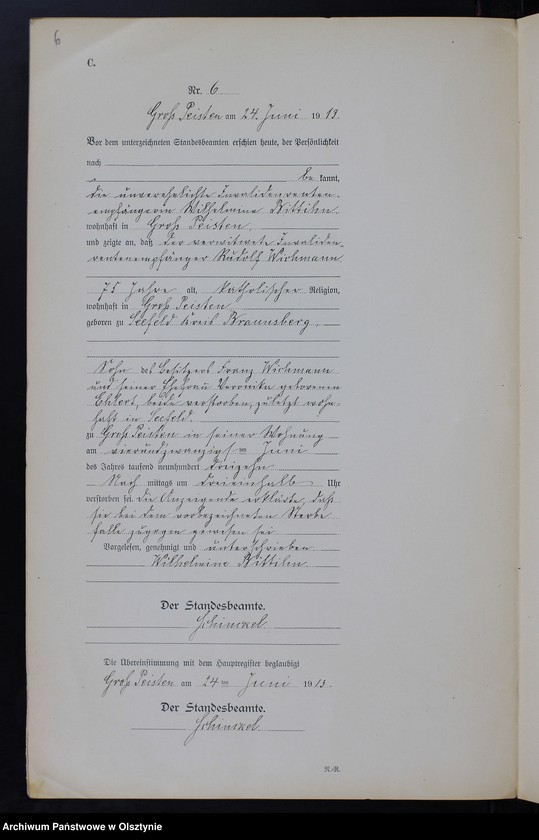 6
C.
Nr. 6
Groß Peisten am 24. Juni 1913.
Vor dem unterzeichneten Standesbeamten erschien heute, der Persönlichkeit
nach
be kannt,
die unverehelichte Invalidenrenten-
empfängerin Wilhelmine
wohnhaft in Groß Peisten
und zeigte an, daß der verwitwete Invaliden
rentenempfänger Rudolf Wichmann
75 Jahre alt, katholischer Religion,
wohnhaft in Groß Peisten
geboren zu Seefeld Kreis Braunsberg
Sohn des Besitzers Franz Wichmann
und seiner Ehefrau Veronika geborenen
Ehlert, beide verstorben, zuletzt wohn-
haft in Seefeld.
zu Groß Peisten in seiner Wohnung
am vierundzwanzigsten Juni
des Jahres tausend neunhundert dreizehn
Nach mittags um dreieinhalb Uhr
verstorben sei. die Anzeigende erklärte, daß
sie bei dem vorbezeichneten Sterbe
falle zugegen gewesen sei
Vorgelesen, genehmigt und unterschrieben
Wilhelmine
Der Standesbeamte.
Schinckel
Die Übereinstimmung mit dem Hauptregister beglaubigt
Groß Peisten am 24ten Juni 1913.
Der Standesbeamte.
Schinckel
Archiwum Państwowe w Olsztynie